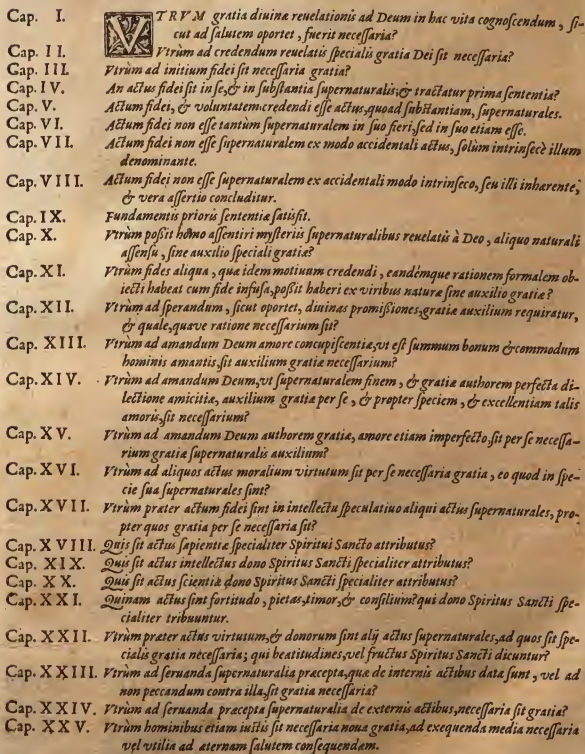 Cap. I. VTRVM gratia diuinæ reuelationis ad Deum in hac vita cognoſcendum, ſi-
cut ad ſalutem oportet, fuerit neceſſaria?
Cap. II. Vtrùm ad credendum reuelatis ſpecialis gratia Dei ſit neceſſaria?
Cap. III. Vtrùm ad initium fidei ſit neceſſaria gratia?
Cap. IV. An actus fidei ſit in ſe, & in ſubſtantia ſupernaturalis; & tractatur prima ſententia?
Cap. V. Actum fidei, & voluntatem credendi eſſe actus, quoad ſubſtantiam, ſupernaturales.
Cap. VI. Actum fidei non eſſe tantùm ſupernaturalem in ſuo fieri, ſed in ſuo etiam eſſe.
Cap. VII. Actum fidei non eſſe ſupernaturalem ex modo accidentali actus, ſolùm intrinſecè illum
denominante.
Cap. VIII. Actum fidei non eſſe ſupernaturalem ex accidentali modo intrinſeco, ſeu illi inhærente,
& vera aſſertio concluditur.
Cap. IX. Fundamentis prioris ſententiæ ſatisfit.
Cap. X. Vtrùm poßit homo aſſentiri myſteriis ſupernaturalibus reuelatis à Deo, aliquo naturali
aſſenſu, ſine auxilio ſpeciali gratiæ?
Cap. XI. Vtrùm fides aliqua, quæ idem motiuum credendi, eandémque rationem formalem ob-
iecti habeat cum fide infuſa, poßit haberi ex viribus naturæ ſine auxilio gratiæ?
Cap. XII. Vtrùm ad ſperandum, ſicut oportet, diuinas promißiones, gratiæ auxilium requiratur,
& quale, quave ratione neceſſarium ſit?
Cap. XIII. Vtrùm ad amandum Deum amore concupiſcentiæ, vt eſt ſummum bonum & commodum
hominis amantis, ſit auxilium gratiæ neceſſarium?
Cap. XIV. Vtrùm ad amandum Deum, vt ſupernaturalem finem, & gratiæ authorem perfecta di-
lectione amicitiæ, auxilium gratiæ per ſe, & propter ſpeciem, & excellentiam talis
amoris, ſit neceſſarium?
Cap. XV. Vtrùm ad amandum Deum authorem gratiæ, amore etiam imperfecto, ſit per ſe neceſſa-
rium gratiæ ſupernaturalis auxilium?
Cap. XVI. Vtrùm ad aliquos actus moralium virtutum ſit per ſe neceſſaria gratia, eo quod in ſpe-
cie ſua ſupernaturales ſint?
Cap. XVII. Vtrùm præter actum fidei ſint in intellectu ſpeculatiuo aliqui actus ſupernaturales, pro-
pter quos gratia per ſe neceſſaria ſit?
Cap. XVIII. Quis ſit actus ſapientiæ ſpecialiter Spiritui Sancto attributus?
Cap. XIX. Quis ſit actus intellectus dono Spiritus Sancti ſpecialiter attributus?
Cap. XX. Quis ſit actus ſcientiæ dono Spiritus Sancti ſpecialiter attributus?
Cap. XXI. Quinam actus ſint fortitudo, pietas, timor, & conſilium? qui dono Spiritus Sancti ſpe-
cialiter tribuuntur.
Cap. XXII. Vtrùm præter actus virtutum, & donorum ſint alij actus ſupernaturales, ad quos ſit ſpe-
cialis gratia neceſſaria; qui beatitudines, vel fructus Spiritus Sancti dicuntur?
Cap. XXIII. Vtrùm ad ſeruanda ſupernaturalia præcepta, quæ de internis actibus data ſunt, vel ad
non peccandum contra illa, ſit gratia neceſſaria?
Cap. XXIV. Vtrùm ad ſeruanda præcepta ſupernaturalia de externis actibus, neceſſaria ſit gratia?
Cap. XXV. Vtrùm hominibus etiam iuſtis ſit neceſſaria noua gratia, ad exequenda media neceſſaria
vel vtilia ad æternam ſalutem conſequendam.